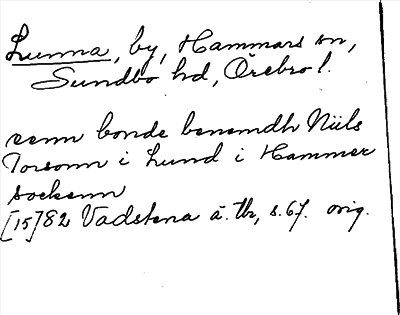 Lunna, by, Hammars sn,
Sundbo hd, Örebro l.
cenn bonde benemdh Niils
Torsonn i Lund i Hammer
sockenn
[15]82 Vadstena ä. tb, s. 67. orig.